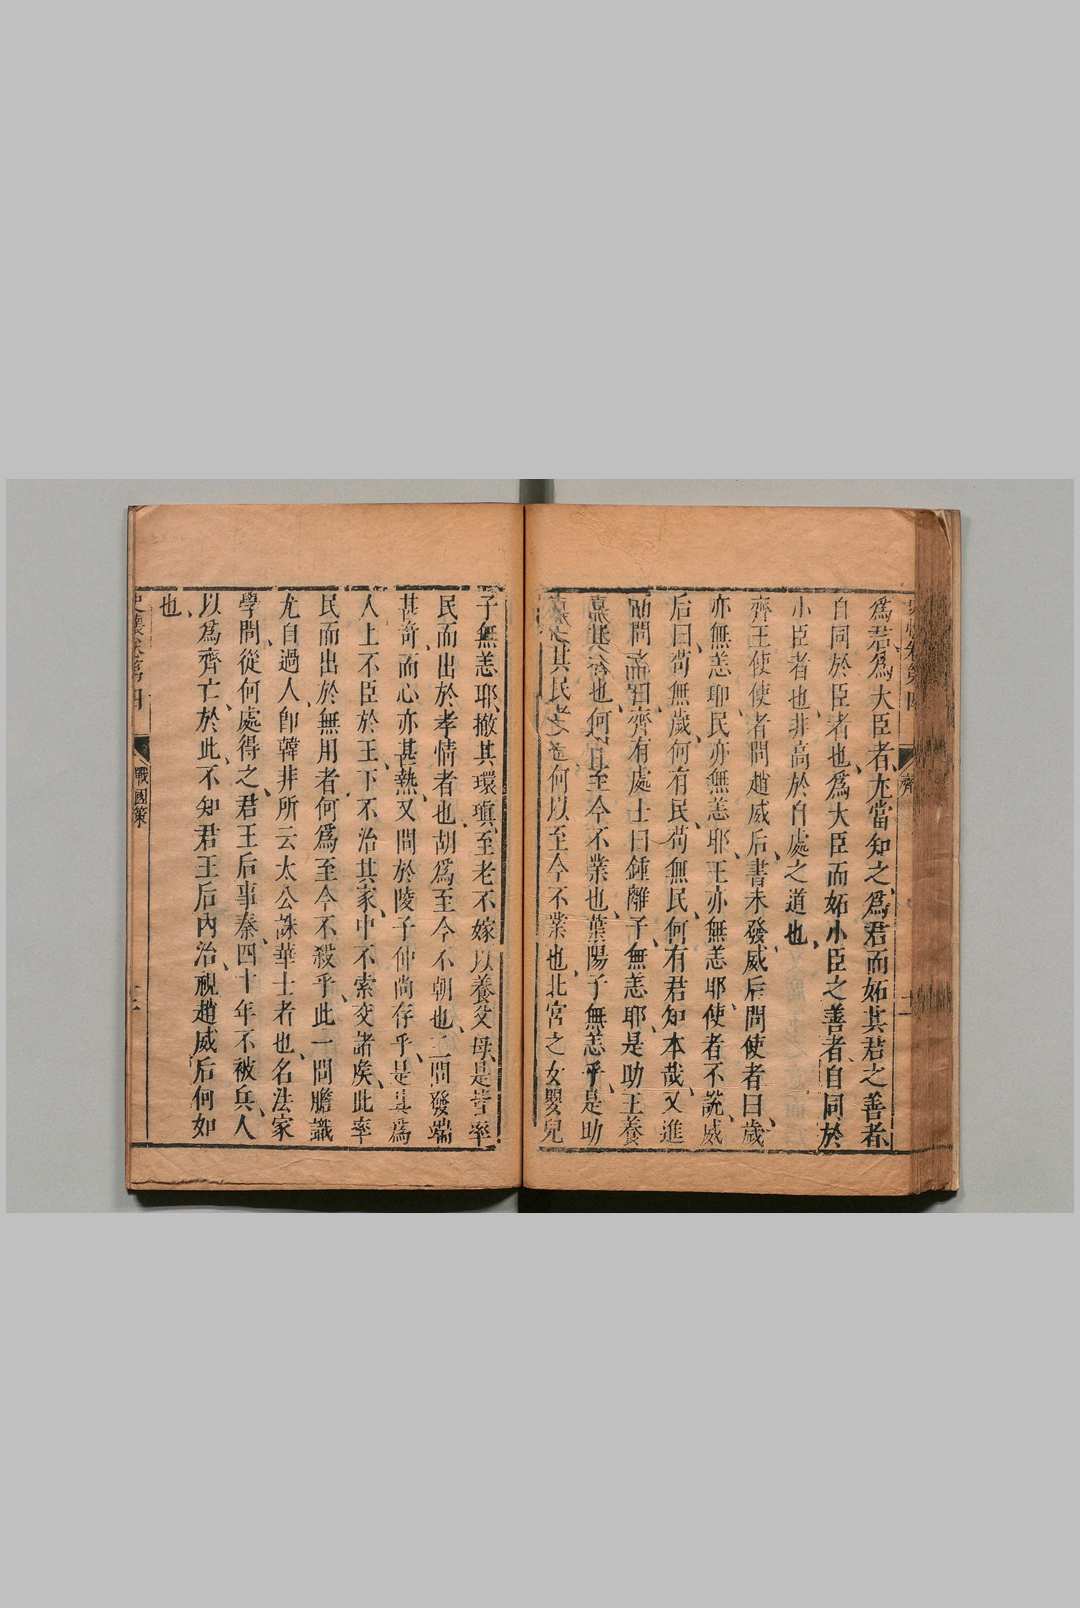 爲君爲大臣者尤當知之爲君而妬其君之善者
自同於臣者也爲大臣而妬小臣之善者自同於
小臣者也非高於自處之道也
齊王使使者問趙威后書未發威后問使者曰歲
亦無恙耶民亦無恙耶王亦無恙耶使者不說威
后曰苟無歲何有民苟無民何有君知本哉又進
而問之曰齊有處士曰鍾離子無恙耶是助王養
其民者也何以至今不業也葉陽子無恙乎是助
王息其民者也何以至今不業也北宮之女嬰兒
子無恙耶撤其環瑱至老不嫁以養父母是皆率
民而出於孝情者也胡爲至今不朝也二問發端
甚奇而心亦甚熱又問於陵子仲尚存乎是其爲
人上不臣於王下不治其家中不索交諸矦此率
民而出於無用者何爲至今不殺乎此一問膽識
尤自過人卽韓非所云太公誅華士者也名法家
學問從何處得之君王后事秦四十年不被兵人
以爲齊亡於此不知君王后內治視趙威后何如
也
史懷卷第四
戰國策